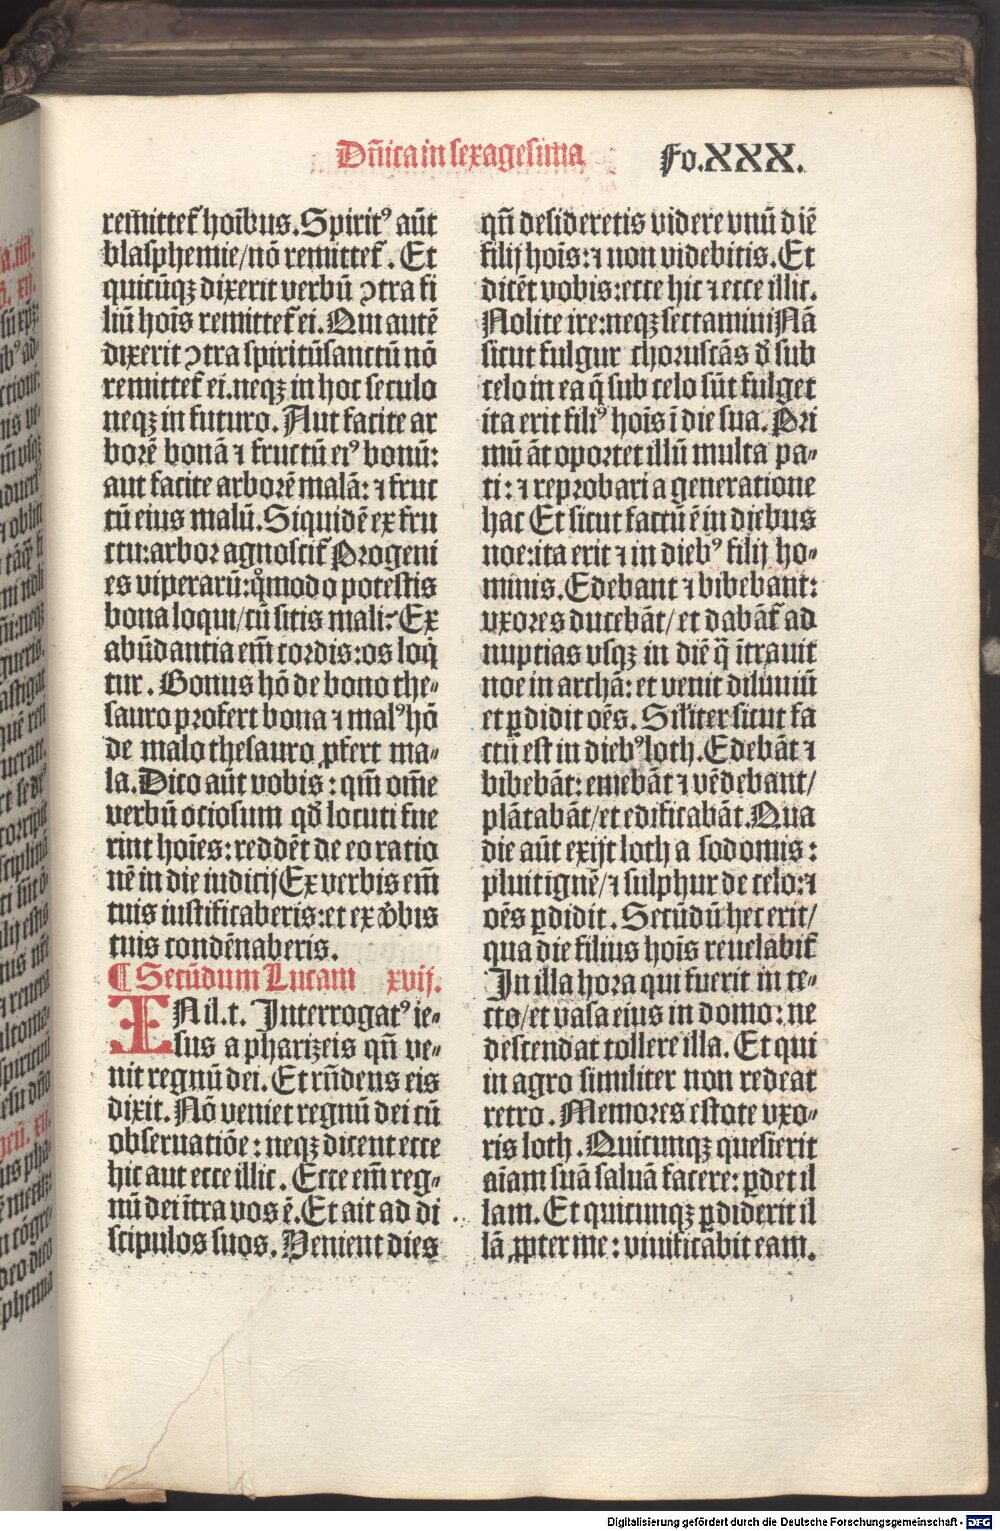 Dn̄ica in sexagesima Fo.XXX.
remittet᷑ hoībus. Spiritꝰ aūt
blasphemie/nō remittet᷑. Et
quicūqꝫ dixerit verbū ꝯtra fi
liū hoīs remittet᷑ ei. Qui autē
dixerit ꝯtra spiritūsanctū nō
remittet᷑ ei. neqꝫ in hoc seculo
neqꝫ in futuro. Aut facite ar
borē bonā ⁊ fructū eiꝰ bonū:
aut facite arborē malā: ⁊ fruc
tū eius malū. Siquidē ex fru
ctu: arbor agnoscit᷑ Progeni
es viperarū: qͦmodo potestis
bona loqui/cū sitis mali? Ex
abūdantia em̄ cordis: os loq̄
tur. Bonus hō de bono the⸗
sauro profert bona ⁊ malꝰ hō
de malo thesauro ꝓfert ma⸗
la. Dico aūt vobis: qm̄ om̄e
verbū ociosum qd̓ locuti fue
rint hoīes: reddēt de eo ratio
nē in die iudicij Ex verbis em̄
tuis iustificaberis: et ex v̓bis
tuis condēnaberis.
¶ Secūdum Lucam xvij.
IN il. t. Interrogatꝰ ie⸗
sus a pharizeis qn̄ ve⸗
nit regnū dei. Et rn̄dens eis
dixit. Nō veniet regnū dei cū
obseruatiōe: neqꝫ dicent ecce
hic aut ecce illic. Ecce em̄ reg⸗
nū dei īntra vos ē. Et ait ad di
scipulos suos. Venient dies
qn̄ desideretis videre vnū diē
filij hoīs: ⁊ non videbitis. Et
dicēt vobis: ecce hic ⁊ ecce illic.
Nolite ire: neqꝫ sectamini Nā
sicut fulgur choruscās d̓ sub
celo in ea q̄ sub celo sūt fulget
ita erit filiꝰ hoīs ī die sua. Pri
mū āt oportet illū multa pa⸗
ti: ⁊ reprobari a generatione
hac Et sicut factū ē in diebus
noe: ita erit ⁊ in diebꝰ filij ho⸗
minis. Edebant ⁊ bibebant:
vxores ducebāt/et dabāt᷑ ad
nuptias vsqꝫ in diē q̄ ītrauit
noe in archā: et venit diluuiū
et ꝑdidit oēs. Siīliter sicut fa
ctū est in diebꝰ loth. Edebāt ⁊
bibebāt: emebāt ⁊ vēdebant/
plātabāt/et edificabāt. Qua
die aūt exijt loth a sodomis:
pluit ignē/⁊ sulphur de celo: ⁊
oēs ꝑdidit. Secūdū hec erit/
qua die filius hoīs reuelabit᷑
In illa hora qui fuerit in te⸗
cto/et vasa eius in domo: ne
descendat tollere illa. Et qui
in agro similiter non redeat
retro. Memores estote vxo⸗
ris loth. Quicunqꝫ quesierit
aīam suā saluā facere: ꝑdet il
lam. Et quicunqꝫ ꝑdiderit il
lā ꝓpter me: viuificabit eam.
Digitalisierung gefördert durch die Deutsche Forschungsgemeinschaft - DFG